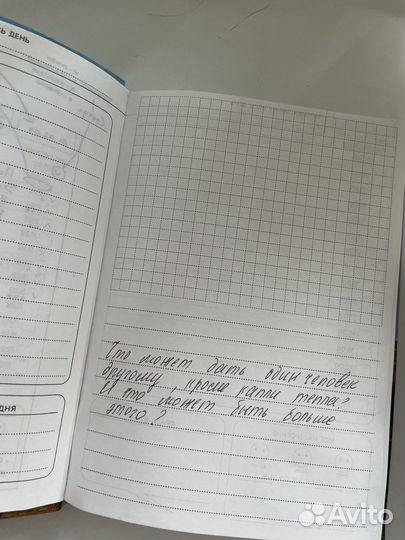 ТЬ ДЕНЬ
Что может дать один человек
другому, кроме капли тепла?
И что может быть больше
этого?
ДНЯ
Avito